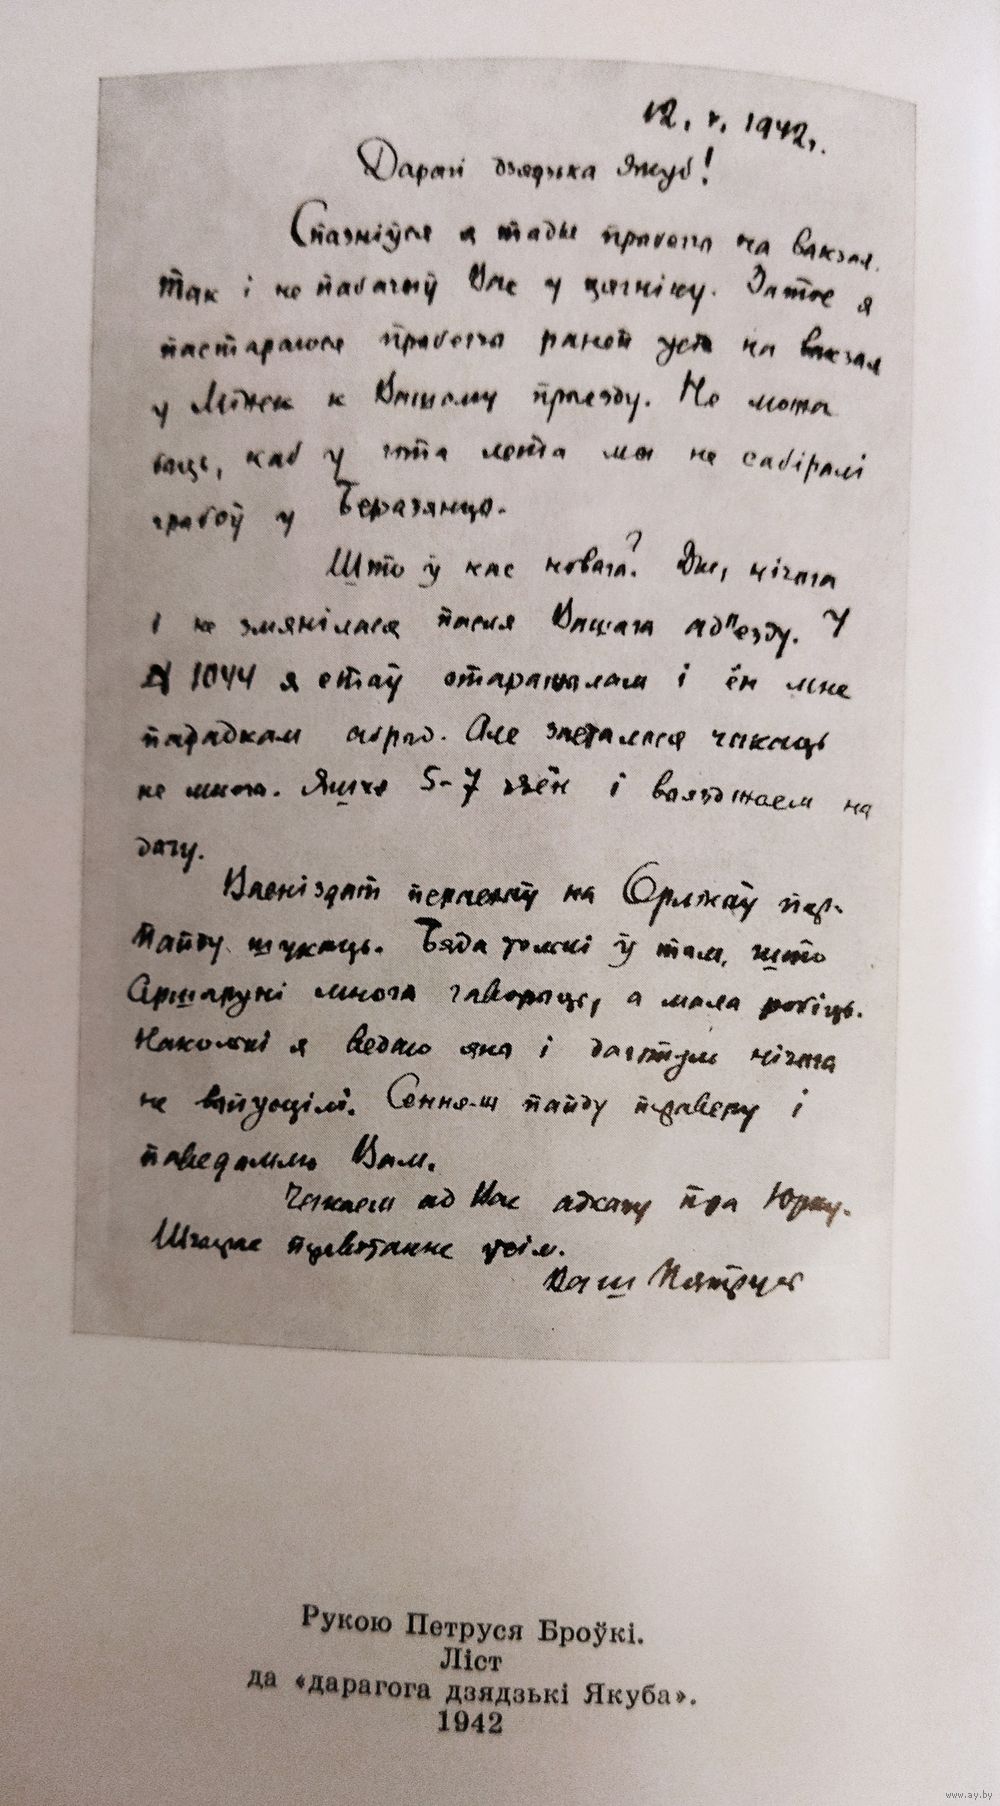 12. V. 1942.
Дарагі дзядзька Якуб!
Спазніўся а тады прабегла на вакзал.
Так і не пабачыў Вас у цягніку. Затое я
пастараюся прабегчы раней усіх на вакзал
у Мінск к Вашаму прыезду. Не можа
быць, каб у гэта лета мы не сабіралі
грыбоў у Беразянцы.
Што ў нас новага? Дык, нічога
і не змянілася пасля Вашага ад'езду. У
№ 1044 я стаў старашылам і ён мне
парадкам абрыд. Але засталося чакаць
не многа. Яшчэ 5-7 дзён і выязджаем на
дачу.
Ваеніздат перенёў на
пайду шукаць. Бяда толькі ў тым, што
Аршаруні многа гаворыць, а мала робіць.
Наколькі я ведаю яны і дагэтуль нічога
не выпусцілі. Сення-ж пайду праверу і
паведамлю Вам.
Чакаем ад Вас адказу пра Юрку.
Шчырае прывітанне усім.
Ваш Пятрусь
Рукою Петруся Броўкі.
Ліст
да «дарагога дзядзькі Якуба».
1942
www.ay.by